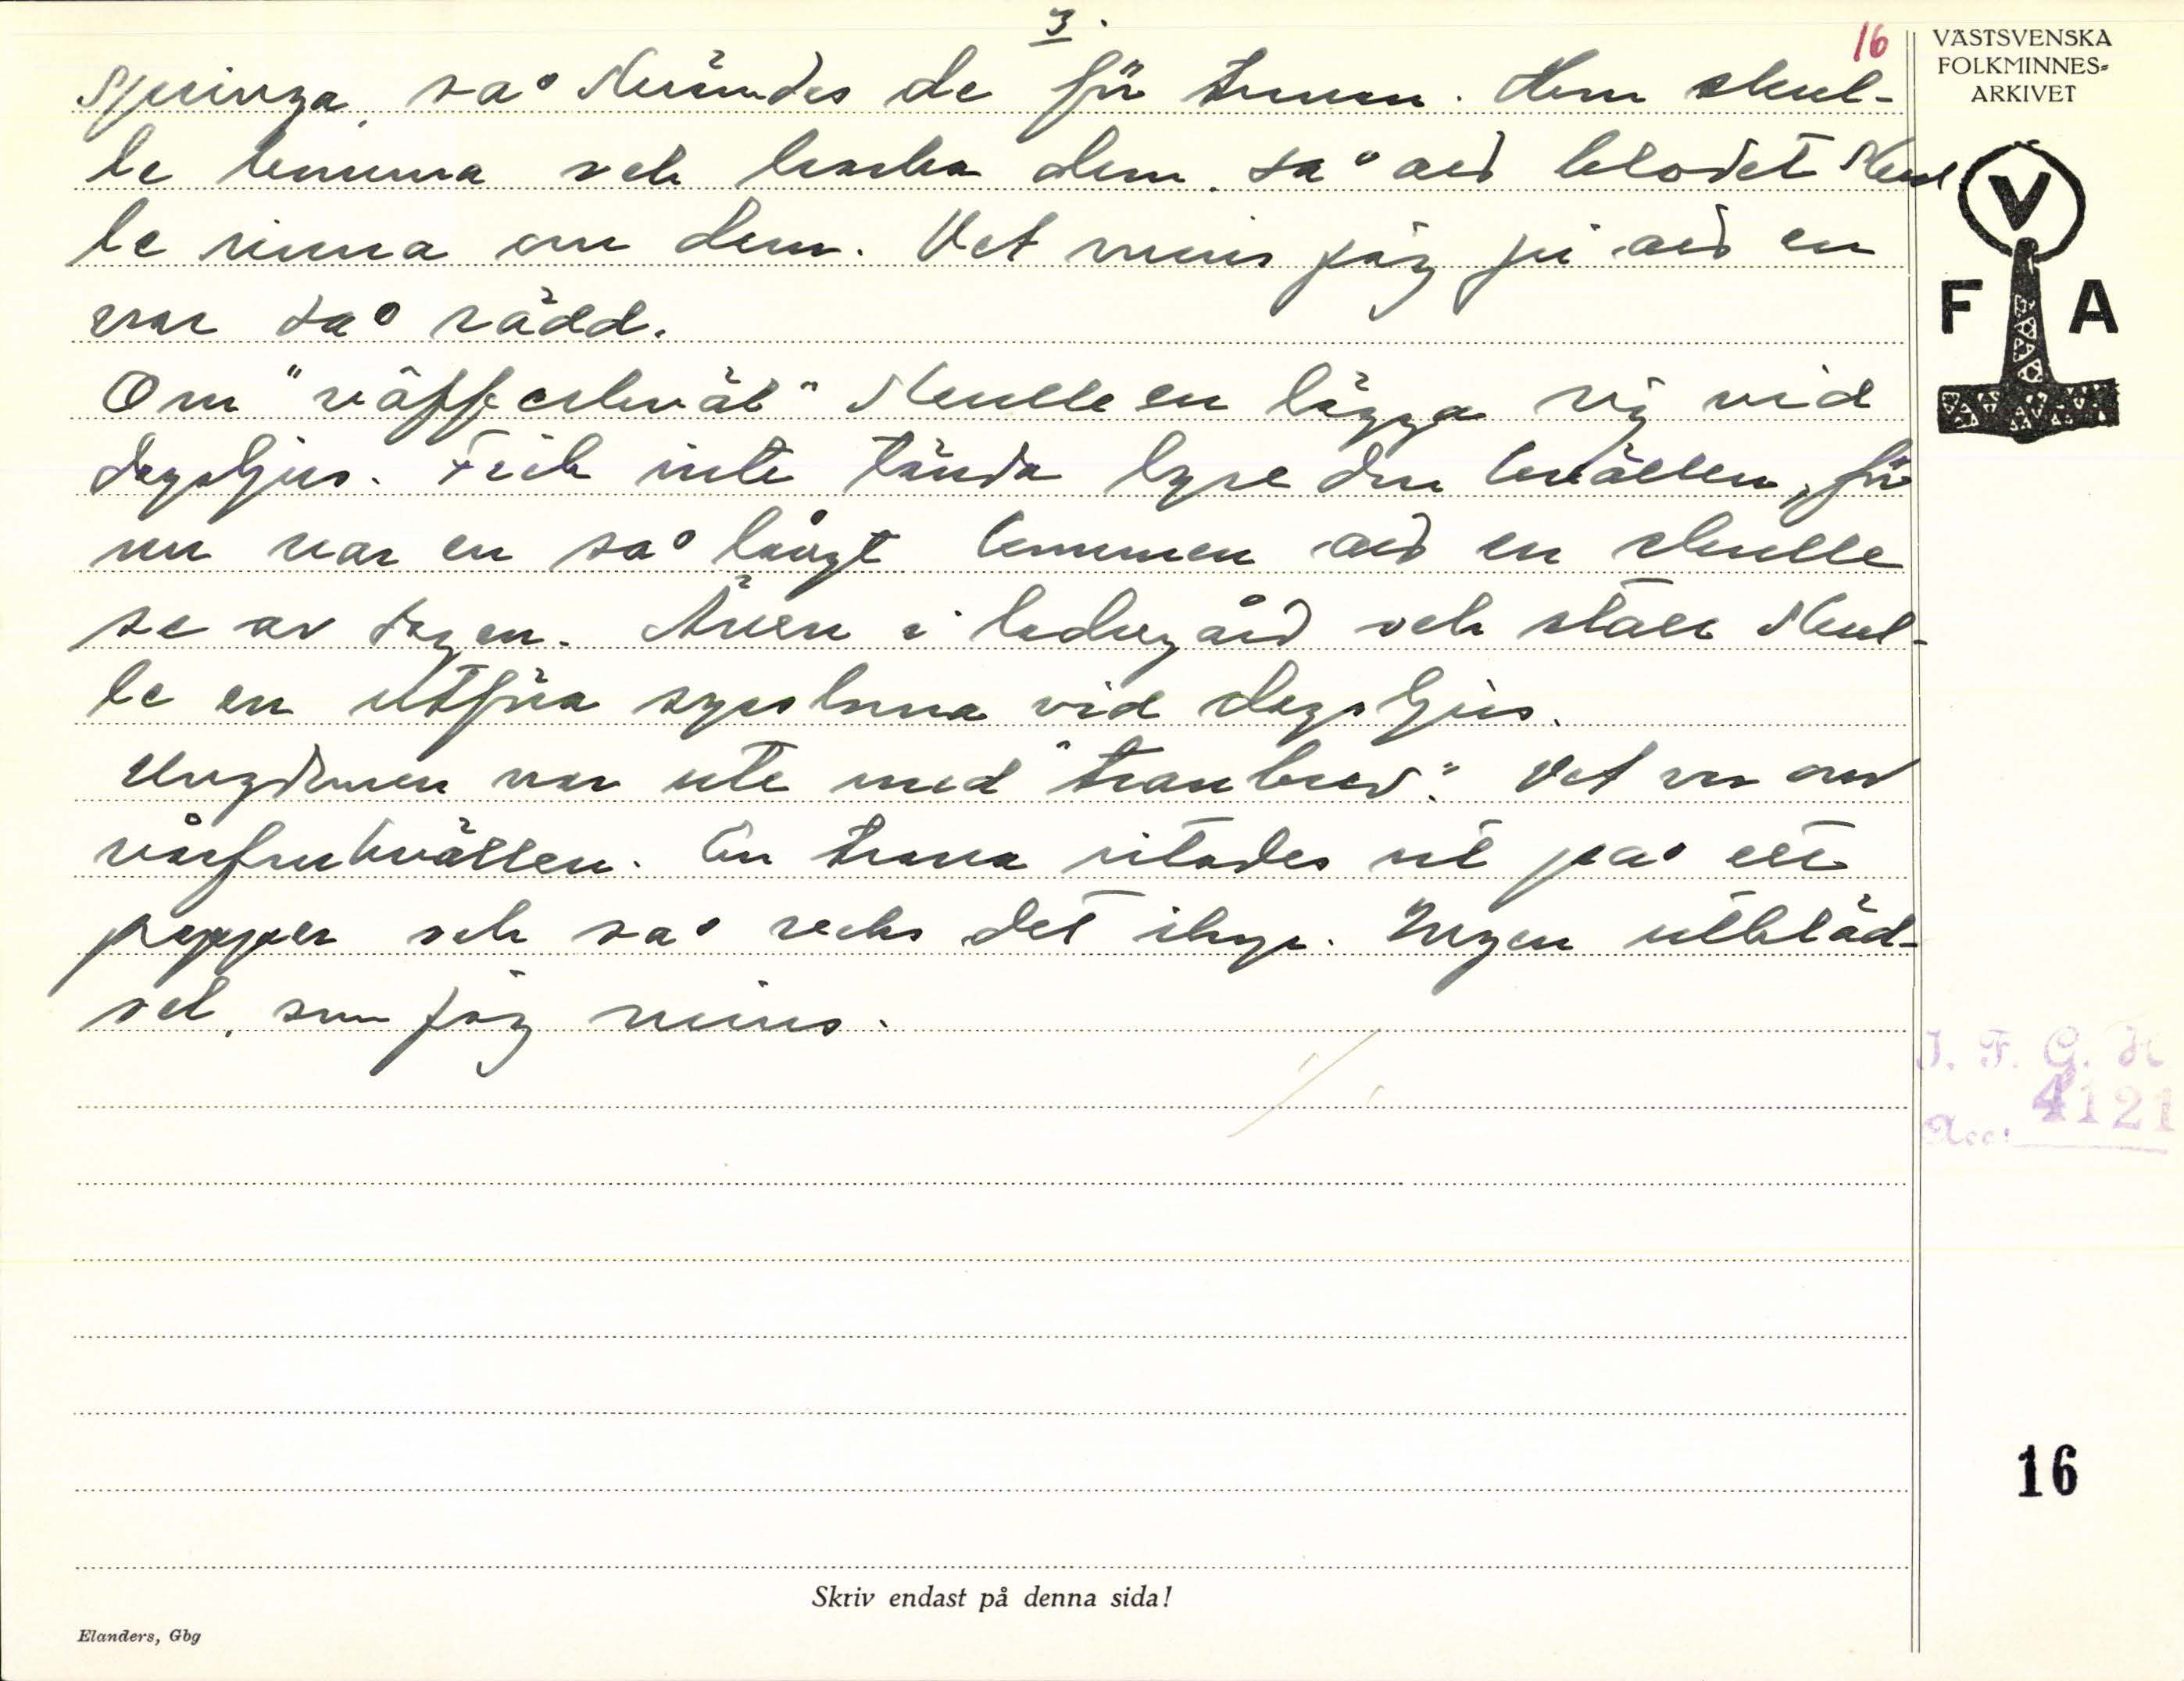 3.
16
springa, så skrämdes de för tranan. Hon skul-
le komma och hacka dem, så att blodet skul
le rinna om dem. Det minns jag ju att en
var så rädd.
Om "väfferskväll" skulle en lägga sig vid
dagsljus. Fick inte tända lyse den kvällen, för
nu var en så långt kommen att en skulle
se av dagen. Även i ladugård och stall skul-
le en utföra sysslorna vid dagsljus.
Ungdomen var ute med "tranbrev". Det var om
vårfrukvällen. En trana ritades ut på ett
papper och så racks det ihop. Ingen utkläd-
sel, som jag minns.
VÄSTSVENSKA
FOLKMINNES-
ARKIVET
V
F A
I. F. G. H
Acc: 4121
16
Skriv endast på denna sida!
Elanders, Gbg